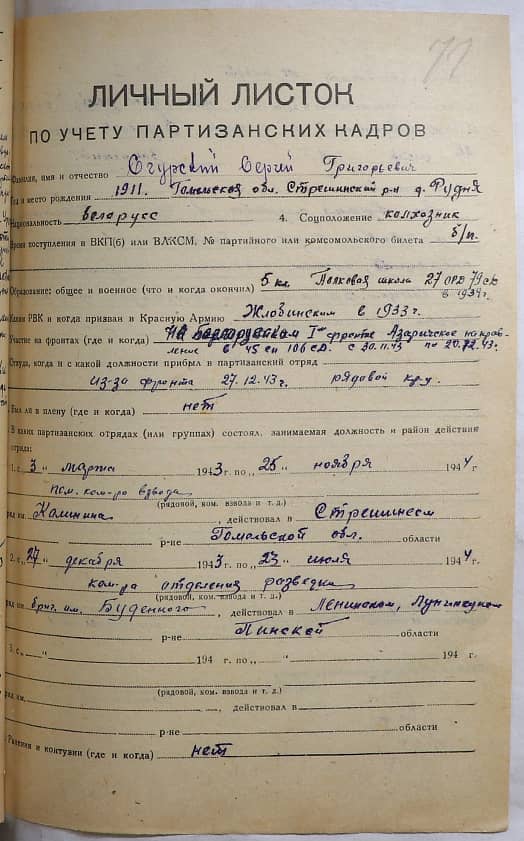 77
ЛИЧНЫЙ ЛИСТОК
ПО УЧЕТУ ПАРТИЗАНСКИХ КАДРОВ
Фамилия, имя и отчество Огурский Сергий Григорьевич
и место рождения 1911. Гомельская обл. Стрешинский р-н д. Рудня
Национальность беларусс 4. Соцположение колхозник
Время поступления в ВКП(б) или ВЛКСМ, № партийного или комсомольского билета б/п.
Образование: общее и военное (что и когда окончил) 5 кл. Полковая школа 27 79
в 1934 г.
Каким РВК и когда призван в Красную Армию Жлобинским в 1933 г.
Участие на фронтах (где и когда) На Белорусском I фронте Азаричское направ-
ление в 45 сп 106 с.д. с 30.11.43 по 20.12.43.
Откуда, когда и с какой должности прибыл в партизанский отряд
из-за фронта 27.12.43 г. рядовой
Был ли в плену (где и когда) нет
В каких партизанских отрядах (или группах) состоял, занимаемая должность и район действия
отряда:
1. с „3„ марта 1943 г. по „25„ ноября 1944 г.
пом. ком-ра взвода
(рядовой, ком. взвода и т. д.)
ряд им. Калинина, действовал в Стрешинском
р-не Гомельской обл. области
2. с „27„ декабря 1943 г. по „23„ июля 1944 г.
ком-ра отделения разведки
(рядовой, ком. взвода и т. д.)
ряд им. бриг. им. Буденного, действовал в Ленинском, Лунинецком
р-не Пинской области
3. с „ “ 194 г. по „ “ 194 г.
(рядовой, ком. взвода и т. д.)
ряд им. , действовал в
р-не области
Ранения и контузии (где и когда) нет